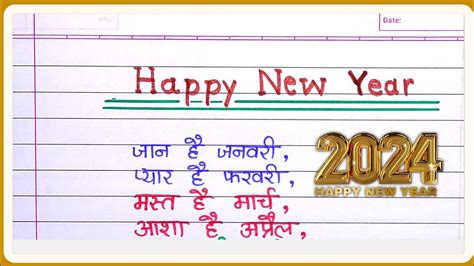 Date:
Happy New Year
जान है जनवरी,
प्यार है फरवरी,
मस्त है मार्च,
आशा है अप्रैल,
2024
HAPPY NEW YEAR